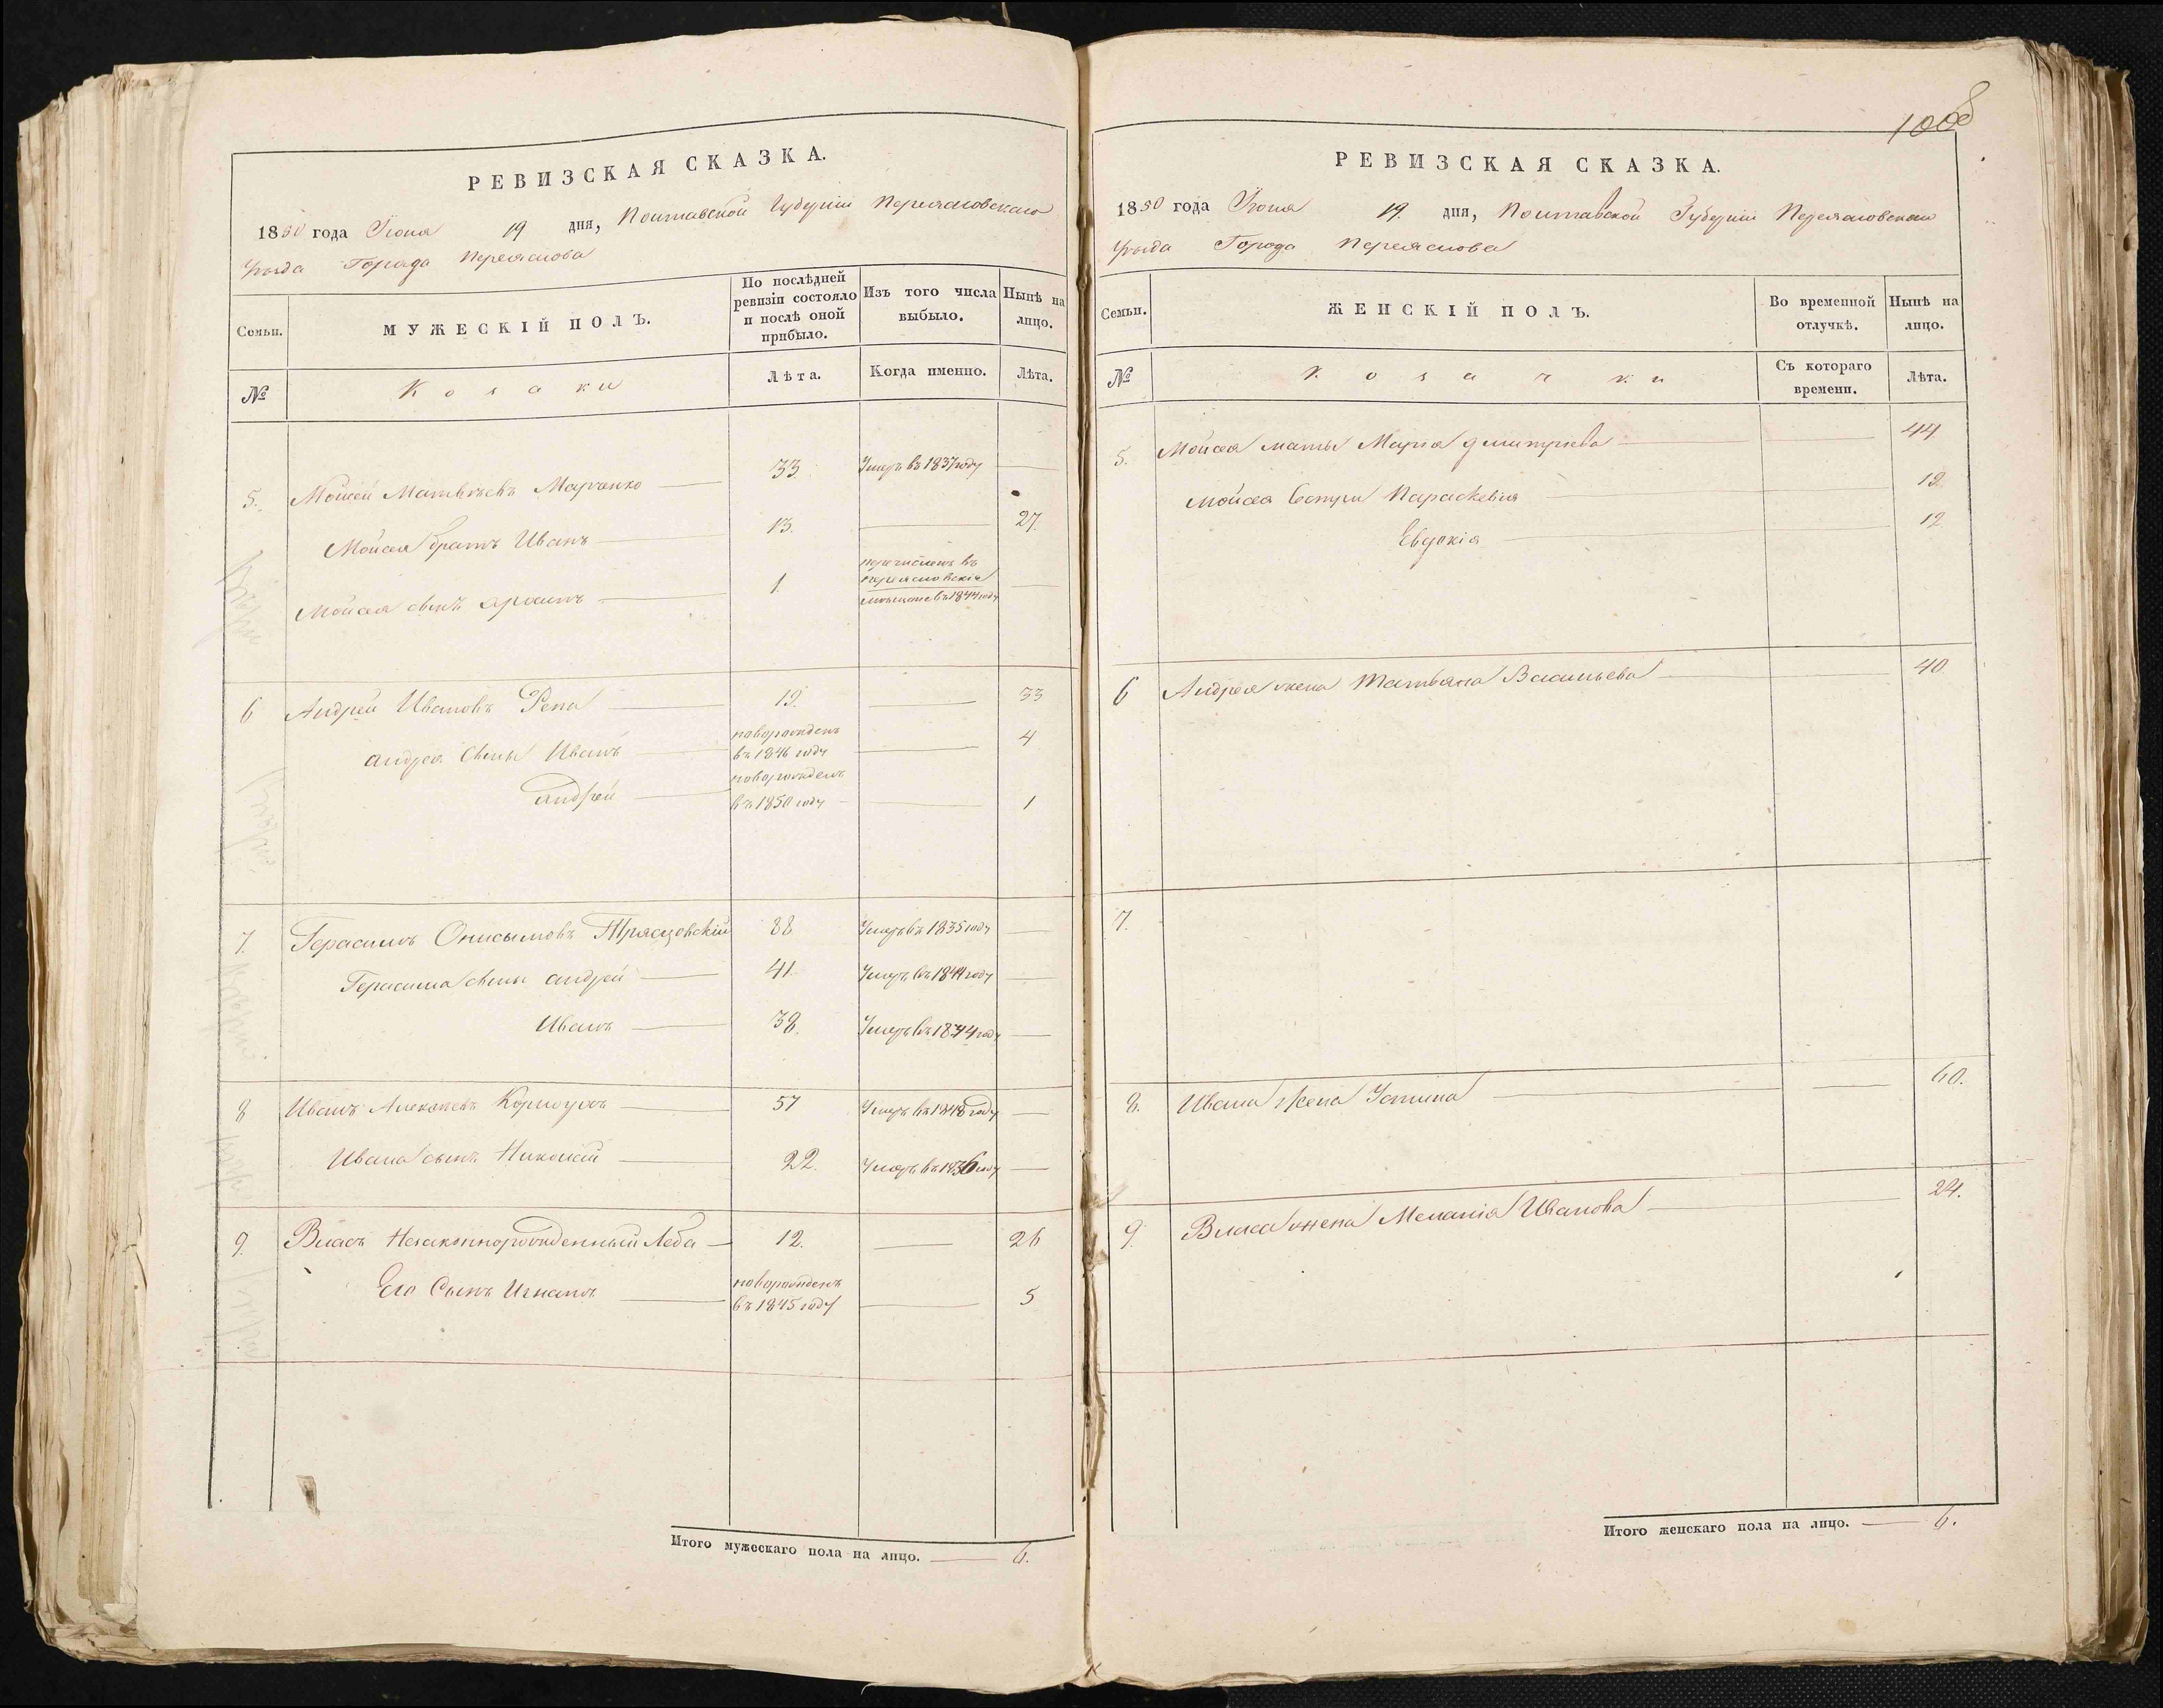 РЕВИЗСКАЯ СКАЗКА.
1850 года Июня 19 дня, Полтавской Губернии Переясловского
Уезда Города Переяслова
Семьи.
МУЖЕСКІЙ ПОЛЪ.
По послѣдней ревизіи состояло и послѣ оной прибыло.
Изъ того числа выбыло.
Нынѣ на лицо.
№
Козаки
Лѣта.
Когда именно.
Лѣта.
5. Мойсей Матвѣевъ Марченко 33. Умеръ въ 1837 году
Мойсея братъ Иванъ 13. 27.
Мойсея сынъ 1. перечисленъ въ
переясловскіе
мещане въ 1844 году
6 Андрей Ивановъ Репа 19. 33
Андрея сыны Иванъ новорожденъ
въ 1846 году 4
Андрей новорожденъ
въ 1850 году 1
7. Герасимъ Онисимовъ 88 Умеръ въ 1835 году
Герасима сыны Андрей 41 Умеръ въ 1844 году
Иванъ 38. Умеръ въ 1844 году
8 Иванъ Алексеевъ 57 Умеръ въ 1848 году
Ивана сынъ Николай 22. Умеръ въ 1836 году
9. Власъ Незаконнорожденный Леба 12. 26
Его Сынъ Игнатъ новорожденъ
въ 1845 году 5
Итого мужескаго пола на лицо. 6.
1008
РЕВИЗСКАЯ СКАЗКА.
1850 года Июня 19. дня, Полтавской Губерніи Переясловскаго
Уезда Города Переяслова
Семьи.
ЖЕНСКІЙ ПОЛЪ.
Во временной отлучкѣ.
Нынѣ на лицо.
№
Козачки
Съ котораго времени.
Лѣта.
5. Мойсея мать Марія Дмитріева 44
Мойсея Сестры Параскевія 19.
Евдокія 12.
6 Андрея жена Татьяна Васильева 40
7.
8. Ивана жена Устина 60.
9. Власа жена Меланія Иванова 24.
Итого женскаго пола на лицо. 6.